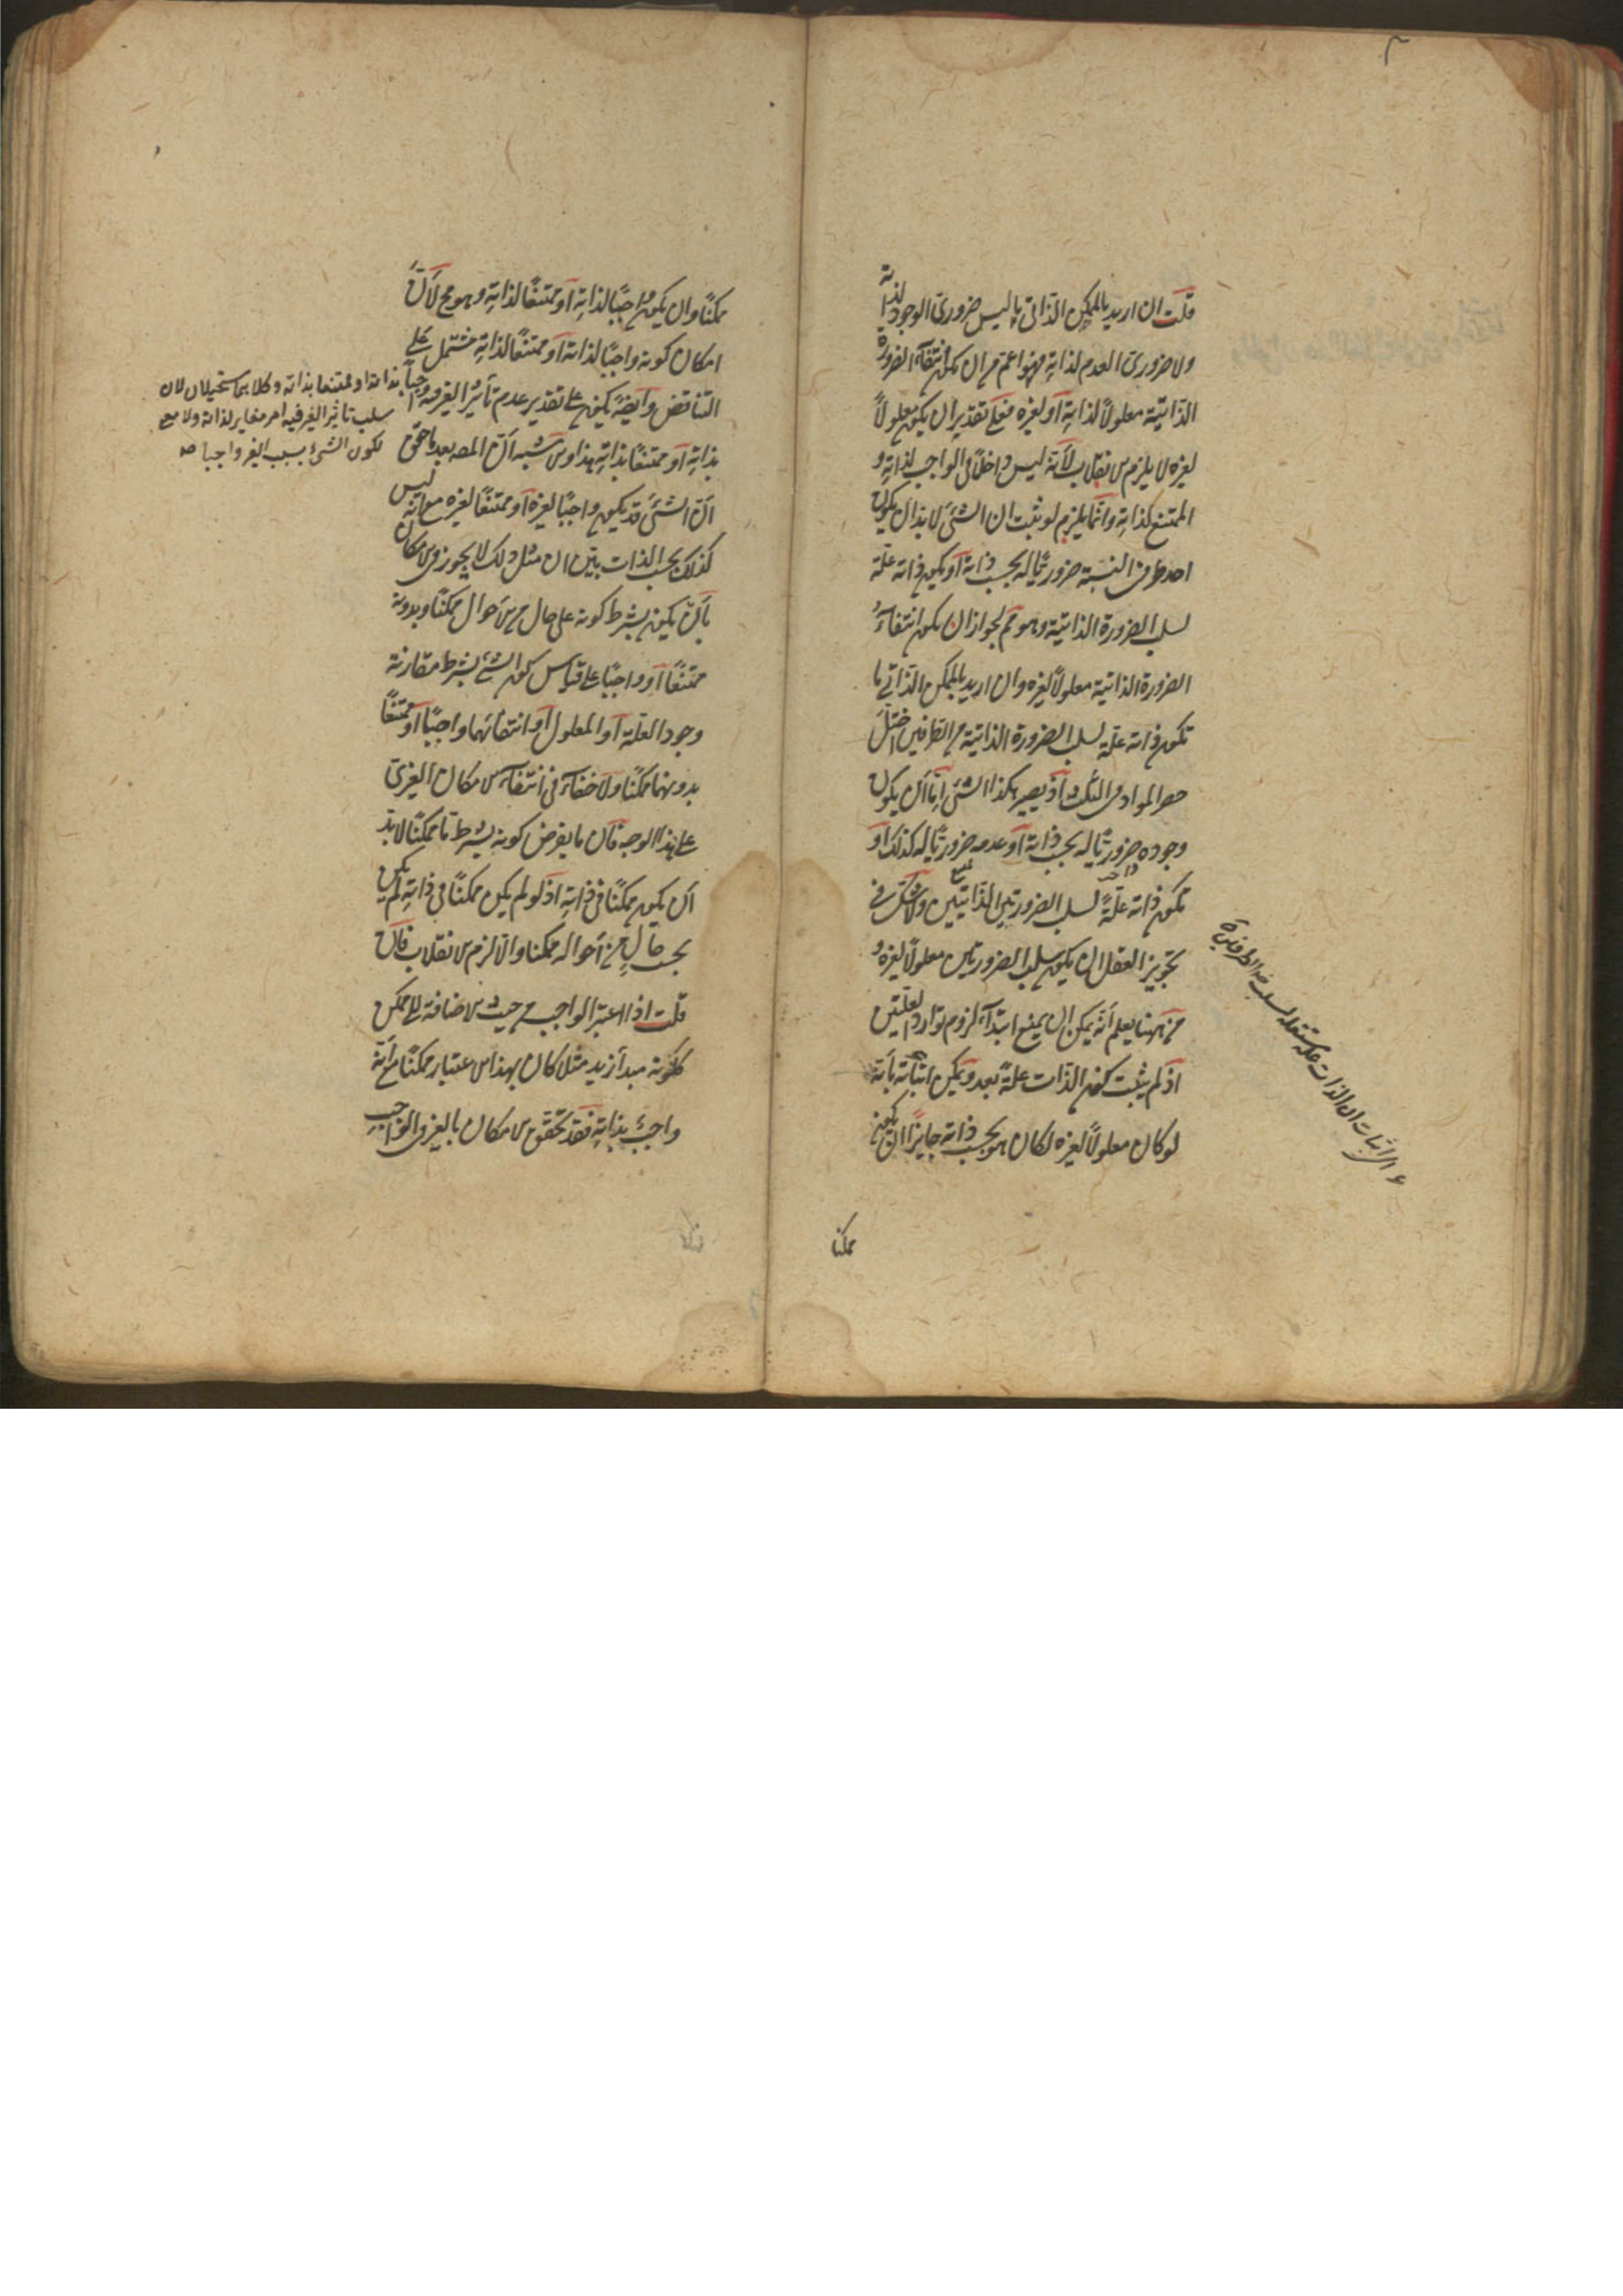 قلت ان اريد بالممكن الذاتي ما ليس ضروري الوجود لذاته
ولا ضروري العدم لذاته فهو اعم من ان يكون انتفاء الضرورة
الذاتية معلولاً لذاته أو لغيره فعلى تقدير ان يكون معلولاً
لغيره لا يلزم الانقلاب لأنه ليس داخلاً في الواجب لذاته و
الممتنع لذاته وانما يلزم لو ثبت ان الشئ لابد ان يكون
احد طرفي النسبة ضروريًا له بحسب ذاته أو يكون ذاته علة
لسلب الضرورة الذاتية وهو مم لجواز ان يكون انتفاء
الضرورة الذاتية معلولاً لغيره وان اريد بالممكن الذاتي ما
تكون ذاته علة لسلب الضرورة الذاتية من الطرفين اختل
حصر المواد في الثلث اذ يصير هكذا الشئ إما أن يكون
وجوده ضروريًا له بحسب ذاته أو عدمه ضروريًا له كذلك أو
تكون ذاته علةً لسلب الضرورتين الذاتيتين ولا شك في
تجويز العقل ان يكون سلب الضرورتين معلولاً لغيره و
من ههنا يعلم أنه يمكن ان يمنع ابتداءً لزوم توارد العلتين
اذ لم يثبت كون الذات علةً بعد ويمكن اثباته بأنه
لو كان معلولاً لغيره لكان هو بحسب ذاته جايزًا ان يكون
الاثبات ان الذات علة مستقلة لسلب ضرورة الطرفين
ممكنا
ممكنًا وان يكون واجبًا لذاته أو ممتنعًا لذاته وهو مح لأن
امكان كونه واجبًا لذاته أو ممتنعًا لذاته مشتمل على
التناقض وأيضًا يكون على تقدير عدم تأثير الغير فيه واجبًا
بذاته أو ممتنعًا بذاته هذا والاشبه أن المصه بعد ما حقق
أن الشئ قد يكون واجبًا لغيره أو ممتنعًا لغيره مع انه ليس
كذلك بحسب الذات بين ان مثل ذلك لا يجوز في الامكان
بأن يكون بشرط كونه على حال من الأحوال ممكنًا وبدونه
ممتنعًا أو واجبًا على قياس كون الشئ بشرط مقارنة
وجود العلة أو المعلول أو انتفائهما واجبًا أو ممتنعًا
بدونهما ممكنًا ولا خفاء في انتفاء الامكان الغيري
على هذا الوجه فان ما يفرض كونه بشرط ما ممكنًا لابد
أن يكون ممكنًا في ذاته اذ لو لم يكن ممكنًا في ذاته لم يكن
بحسب حالٍ من أحواله ممكنا والا لزم الانقلاب فان
قلت اذا اعتبر الواجب من حيث الاضافة الى ممكن
ككونه مبدأ زيد مثلا كان بهذا الاعتبار ممكنًا مع أنه
واجبٌ بذاته فقد تحقق الامكان بالغير في الواجب
بذاته او ممتنعا بذاته وكلاهما مستحيلان لان
سلب تاثير الغير فيه امر مغاير لذاته ولا مع
لكون الشئ بسبب الغير واجبا صه